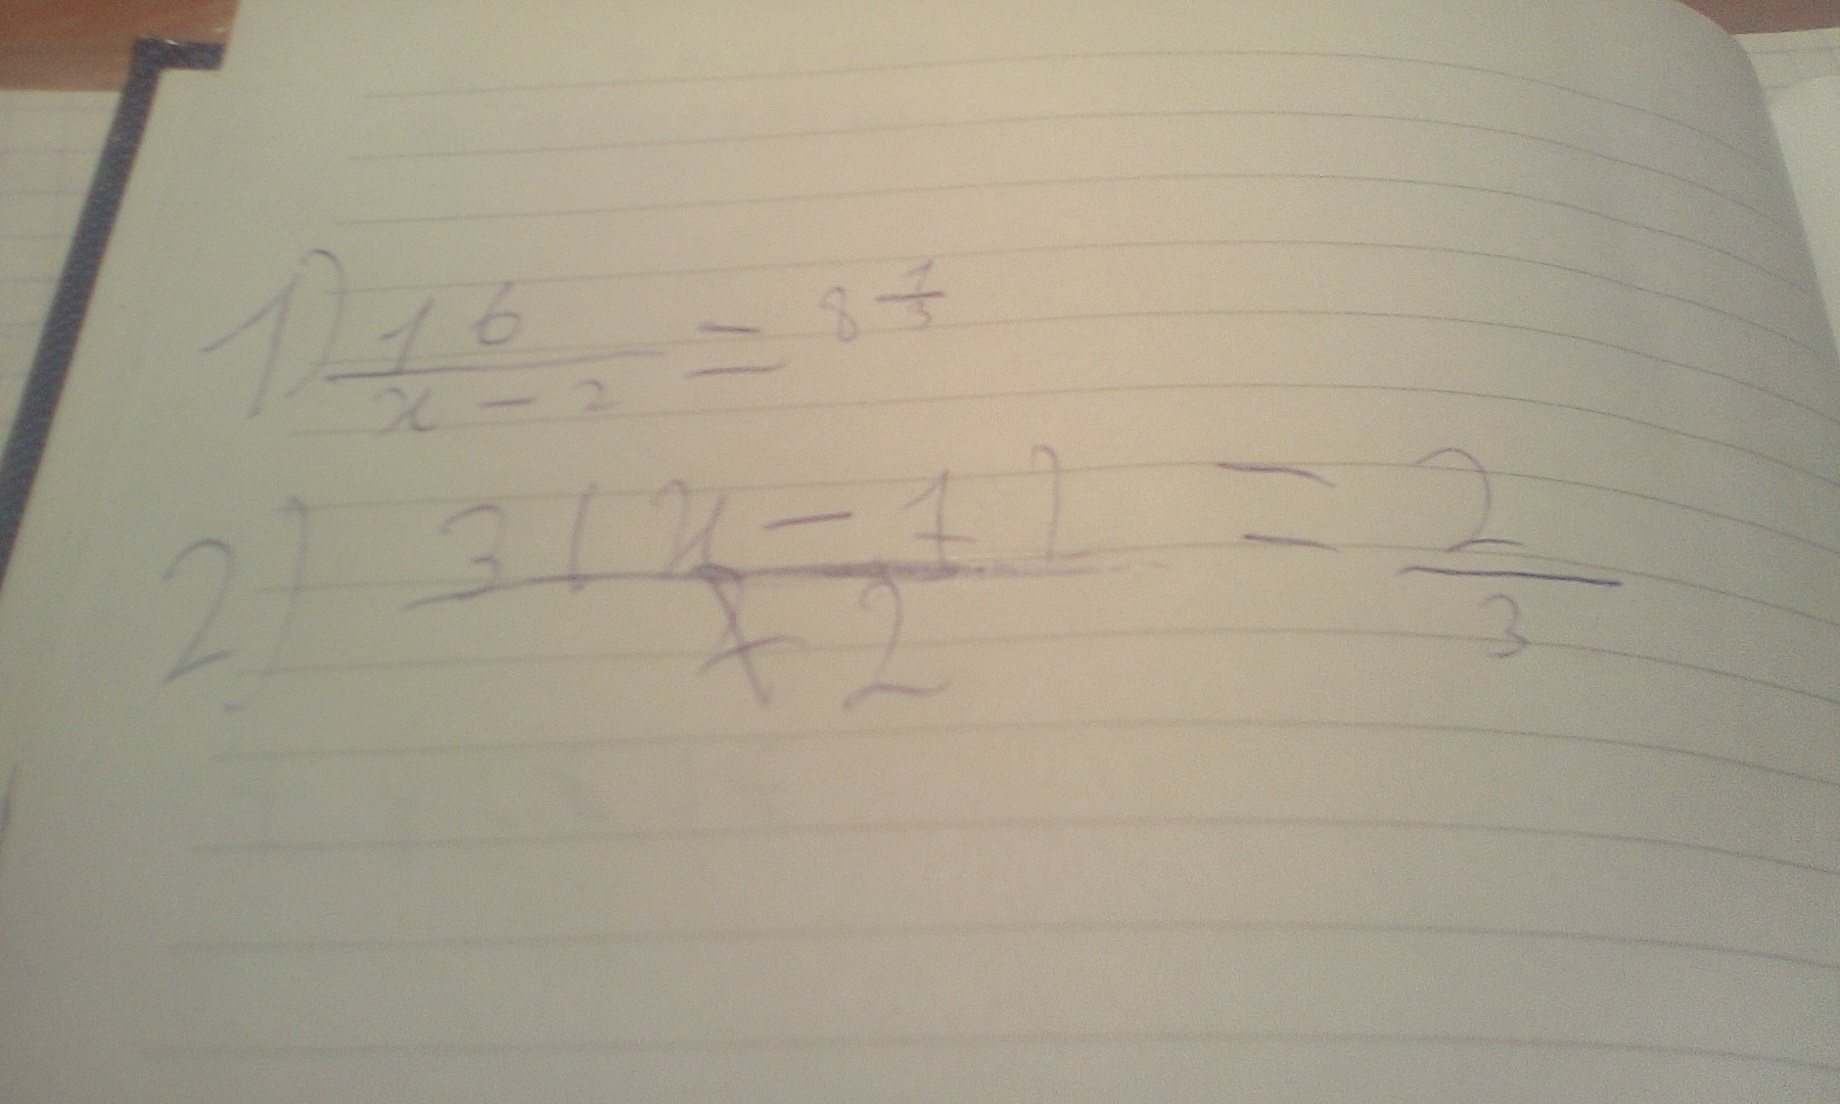 1) 16/(x-2) = 8 1/3
2) 3(x-1)/(x 2) = 2/3